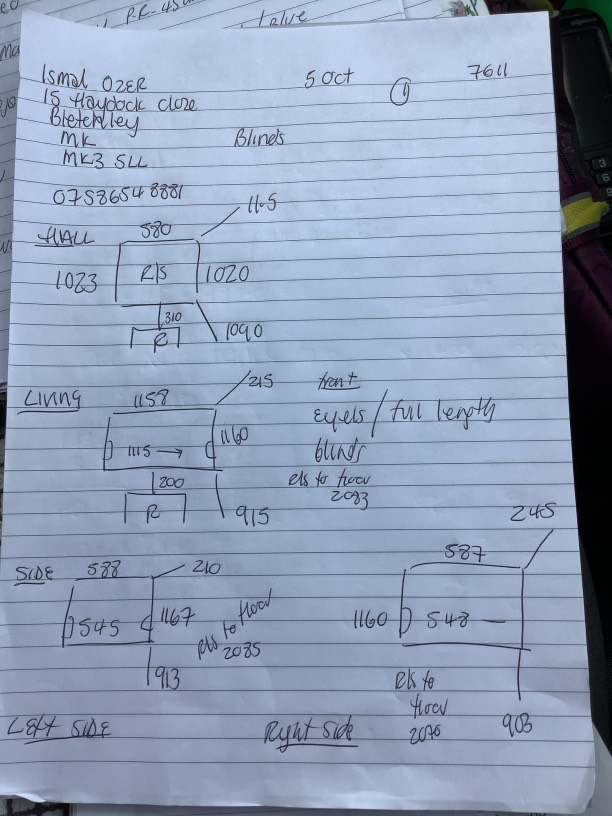 Ismal OZER
5 Oct
1
7611
15 Haydock close
Bletchley
MK
Blinds
MK3 5LL
07586548881
HALL
580
1165
1023
R/S
1020
310
R
1090
LIVING
1158
215
front
Eyelets / full length
1115 →
1160
blinds
R/S to floor
2083
200
R
915
245
SIDE
588
210
587
545
1167
R/S to floor
2085
1160
548
913
R/S to
floor
2076
903
Left SIDE
Right side